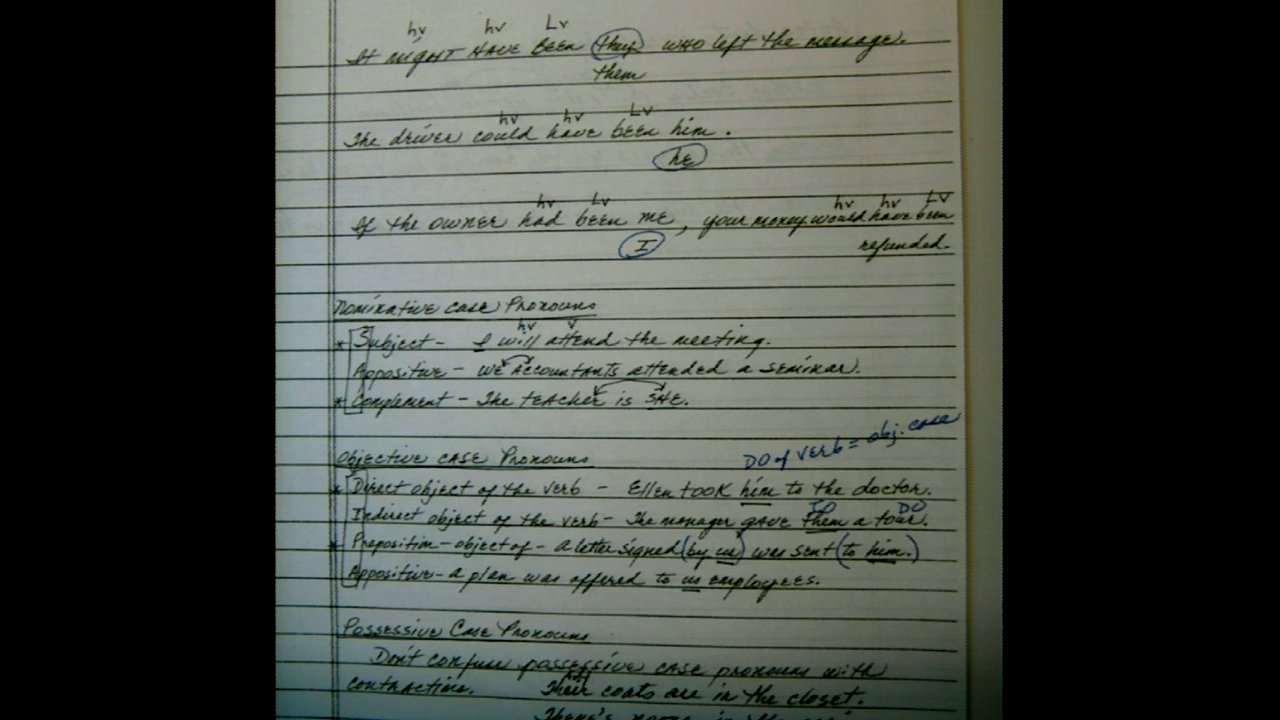 hv hv Lv
It might HAVE BEEN they who left the message.
them
hv hv Lv
The driver could have been him.
he
hv Lv hv hv Lv
If the owner had been me, your money would have been
I refunded.
Nominative Case Pronouns
hv v
* Subject - I will attend the meeting.
Appositive - WE Accountants attended a seminar.
* Complement - The teacher is SHE.
DO of verb = obj. case
Objective Case Pronouns
* Direct object of the verb - Ellen took him to the doctor.
IO DO
Indirect object of the verb - The manager gave them a tour.
* Preposition - object of - a letter signed (by us) was sent (to him.)
Appositive - a plan was offered to us employees.
Possessive Case Pronouns
Don't confuse possessive case pronouns with
contractions. Their coats are in the closet.
There's